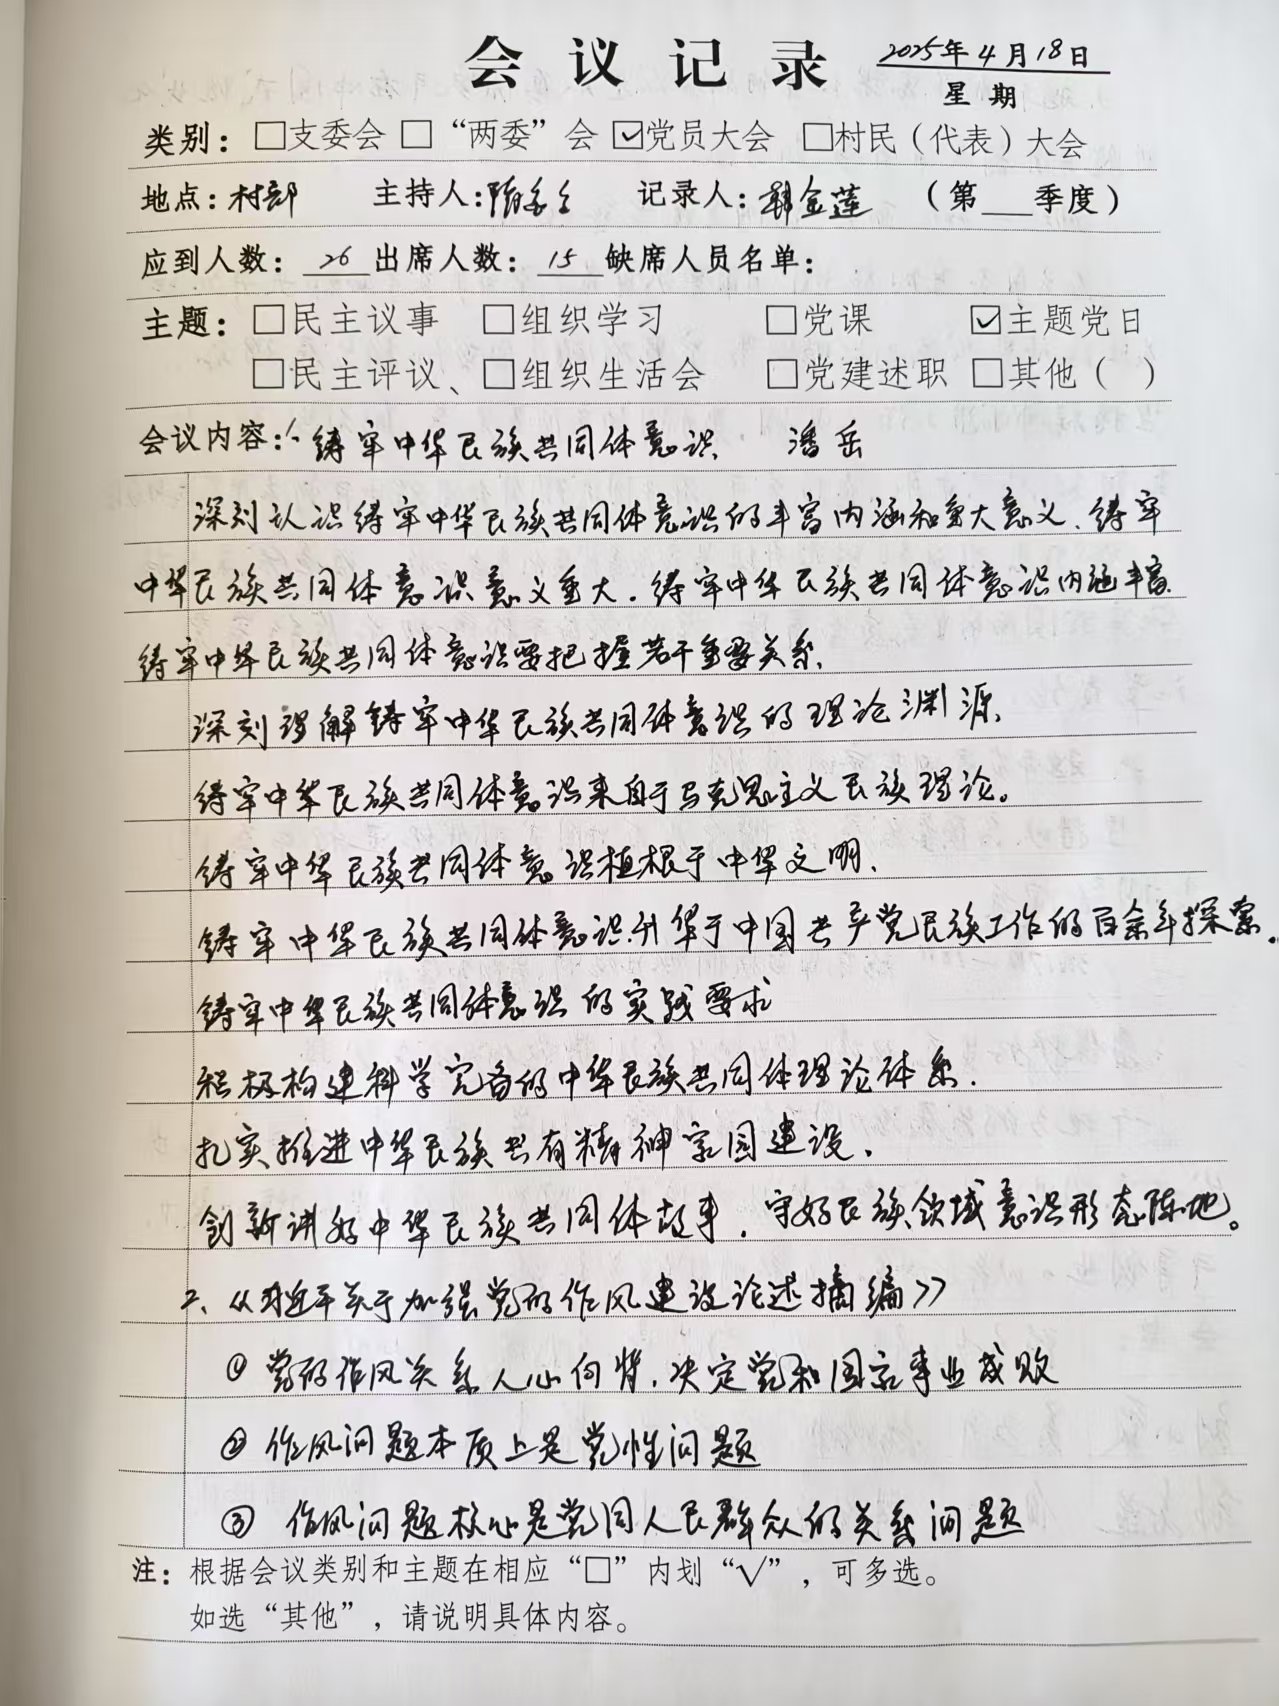 会议记录 2025年4月18日
星期
类别：□支委会 □“两委”会 ☑党员大会 □村民（代表）大会
地点：村部 主持人： 记录人：韩金莲 （第___季度）
应到人数：26 出席人数：15 缺席人员名单：
主题：□民主议事 □组织学习 □党课 ☑主题党日
□民主评议、□组织生活会 □党建述职 □其他（ ）
会议内容：一、铸牢中华民族共同体意识 潘岳
深刻认识铸牢中华民族共同体意识的丰富内涵和重大意义、铸牢
中华民族共同体意识意义重大．铸牢中华民族共同体意识内涵丰富．
铸牢中华民族共同体意识要把握若干重要关系．
深刻理解铸牢中华民族共同体意识的理论渊源．
铸牢中华民族共同体意识来自于马克思主义民族理论。
铸牢中华民族共同体意识植根于中华文明．
铸牢中华民族共同体意识升华于中国共产党民族工作的百余年探索．
铸牢中华民族共同体意识的实践要求
积极构建科学完备的中华民族共同体理论体系．
扎实推进中华民族共有精神家园建设．
创新讲好中华民族共同体故事．守好民族领域意识形态阵地。
二、《习近平关于加强党的作风建设论述摘编》
① 党的作风关系人心向背．决定党和国家事业成败
② 作风问题本质上是党性问题
③ 作风问题核心是党同人民群众的关系问题
注：根据会议类别和主题在相应“□”内划“√”，可多选。
如选“其他”，请说明具体内容。